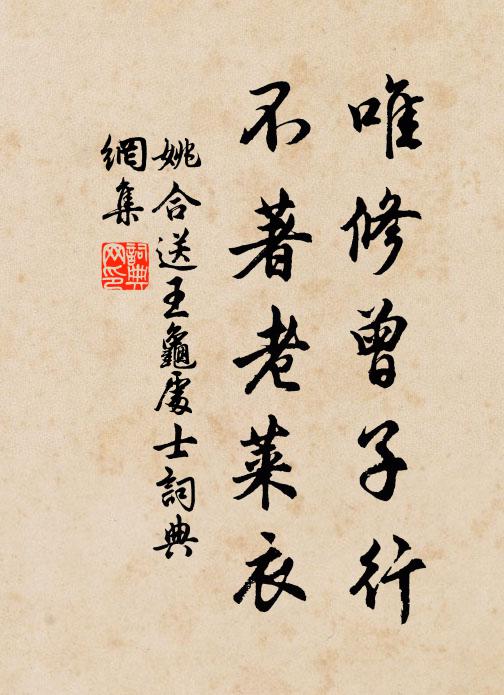 唯修曾子行
不著老萊衣
姚合送王龜處士詞典
網集
詞典
网印